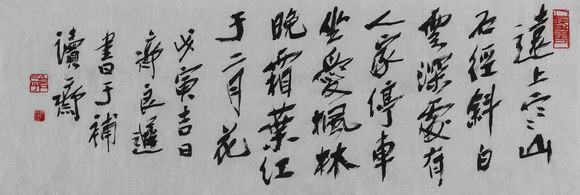 遠上寒山
石徑斜白
雲深處有
人家停車
坐愛楓林
晚霜葉紅
于二月花
戊寅吉日
齊良遲
書于補
讀齋